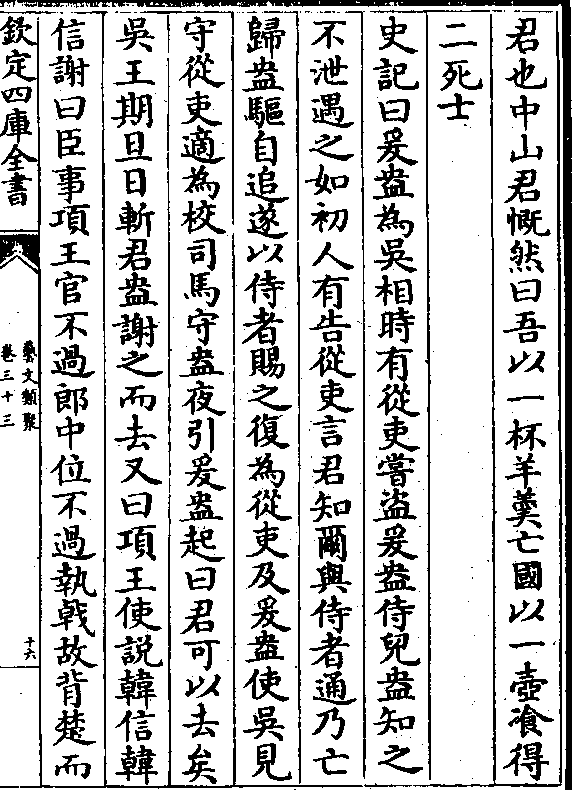 君也中山君慨然曰吾以一杯羊羮亡國以一壺飡得
二死士
史記曰爰盎為吳相時有從吏嘗盜爰盎侍兒盎知之
不泄遇之如初人有告從吏言君知爾與侍者通乃亡
歸盎驅自追遂以侍者賜之復為從吏及爰盎使吳見
守從吏適為校司馬守盎夜引爰盎起曰君可以去矣
吳王期旦日斬君盎謝之而去又曰項王使説韓信韓
信謝曰臣事項王官不過郎中位不過執戟故背楚而
欽定四庫全書
藝文類聚
卷三十三
十六